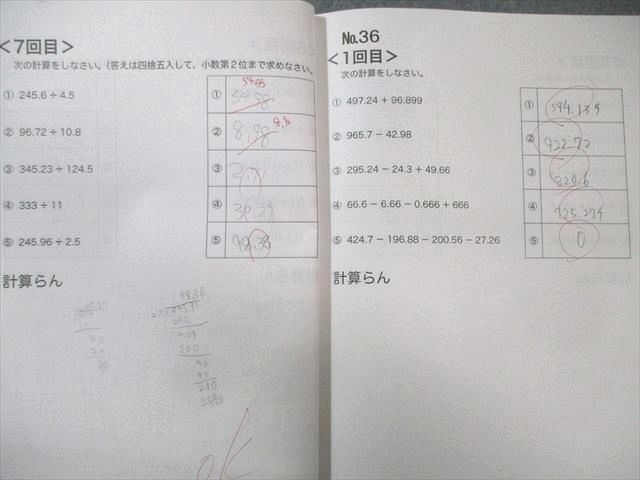 <7回目>
次の計算をしなさい。(答えは四捨五入して、小数第2位まで求めなさい。
① 245.6÷4.5
② 96.72÷10.8
③ 345.23÷124.5
④ 333÷11
⑤ 245.96÷2.5
①
② 8.98
③
④
⑤ 98.38
計算らん
ok
No.36
<1回目>
次の計算をしなさい。
① 497.24+96.899
② 965.7−42.98
③ 295.24−24.3+49.66
④ 66.6−6.66−0.666+666
⑤ 424.7−196.88−200.56−27.26
① 594.139
② 922.72
③ 320.6
④ 725.274
⑤ 0
計算らん